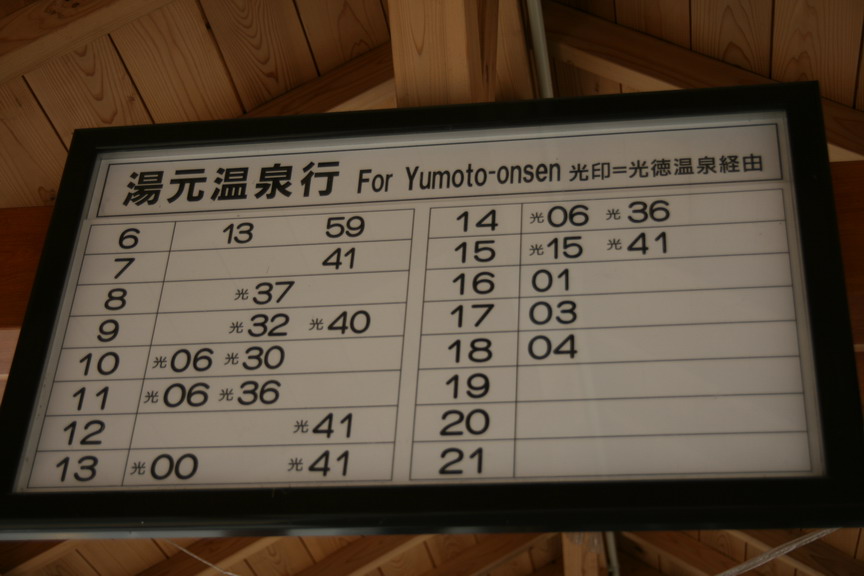 湯元温泉行 For Yumoto-onsen 光印=光徳温泉経由
6 13 59
7 41
8 光37
9 光32 光40
10 光06 光30
11 光06 光36
12 光41
13 光00 光41
14 光06 光36
15 光15 光41
16 01
17 03
18 04
19
20
21